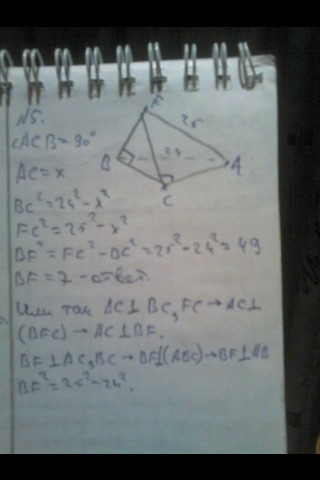 N5.
∠ACB=90°
AC=x
BC²=24²-x²
FC²=25²-x²
BF²=FC²-BC²=25²-24²=49
BF=7-ответ.
Или так AC⊥BC, FC→AC⊥
(BFC)→AC⊥BF.
BF⊥AC, BC→BF⊥(ABC)→BF⊥AB
BF²=25²-24².
F
25
B
24
A
C